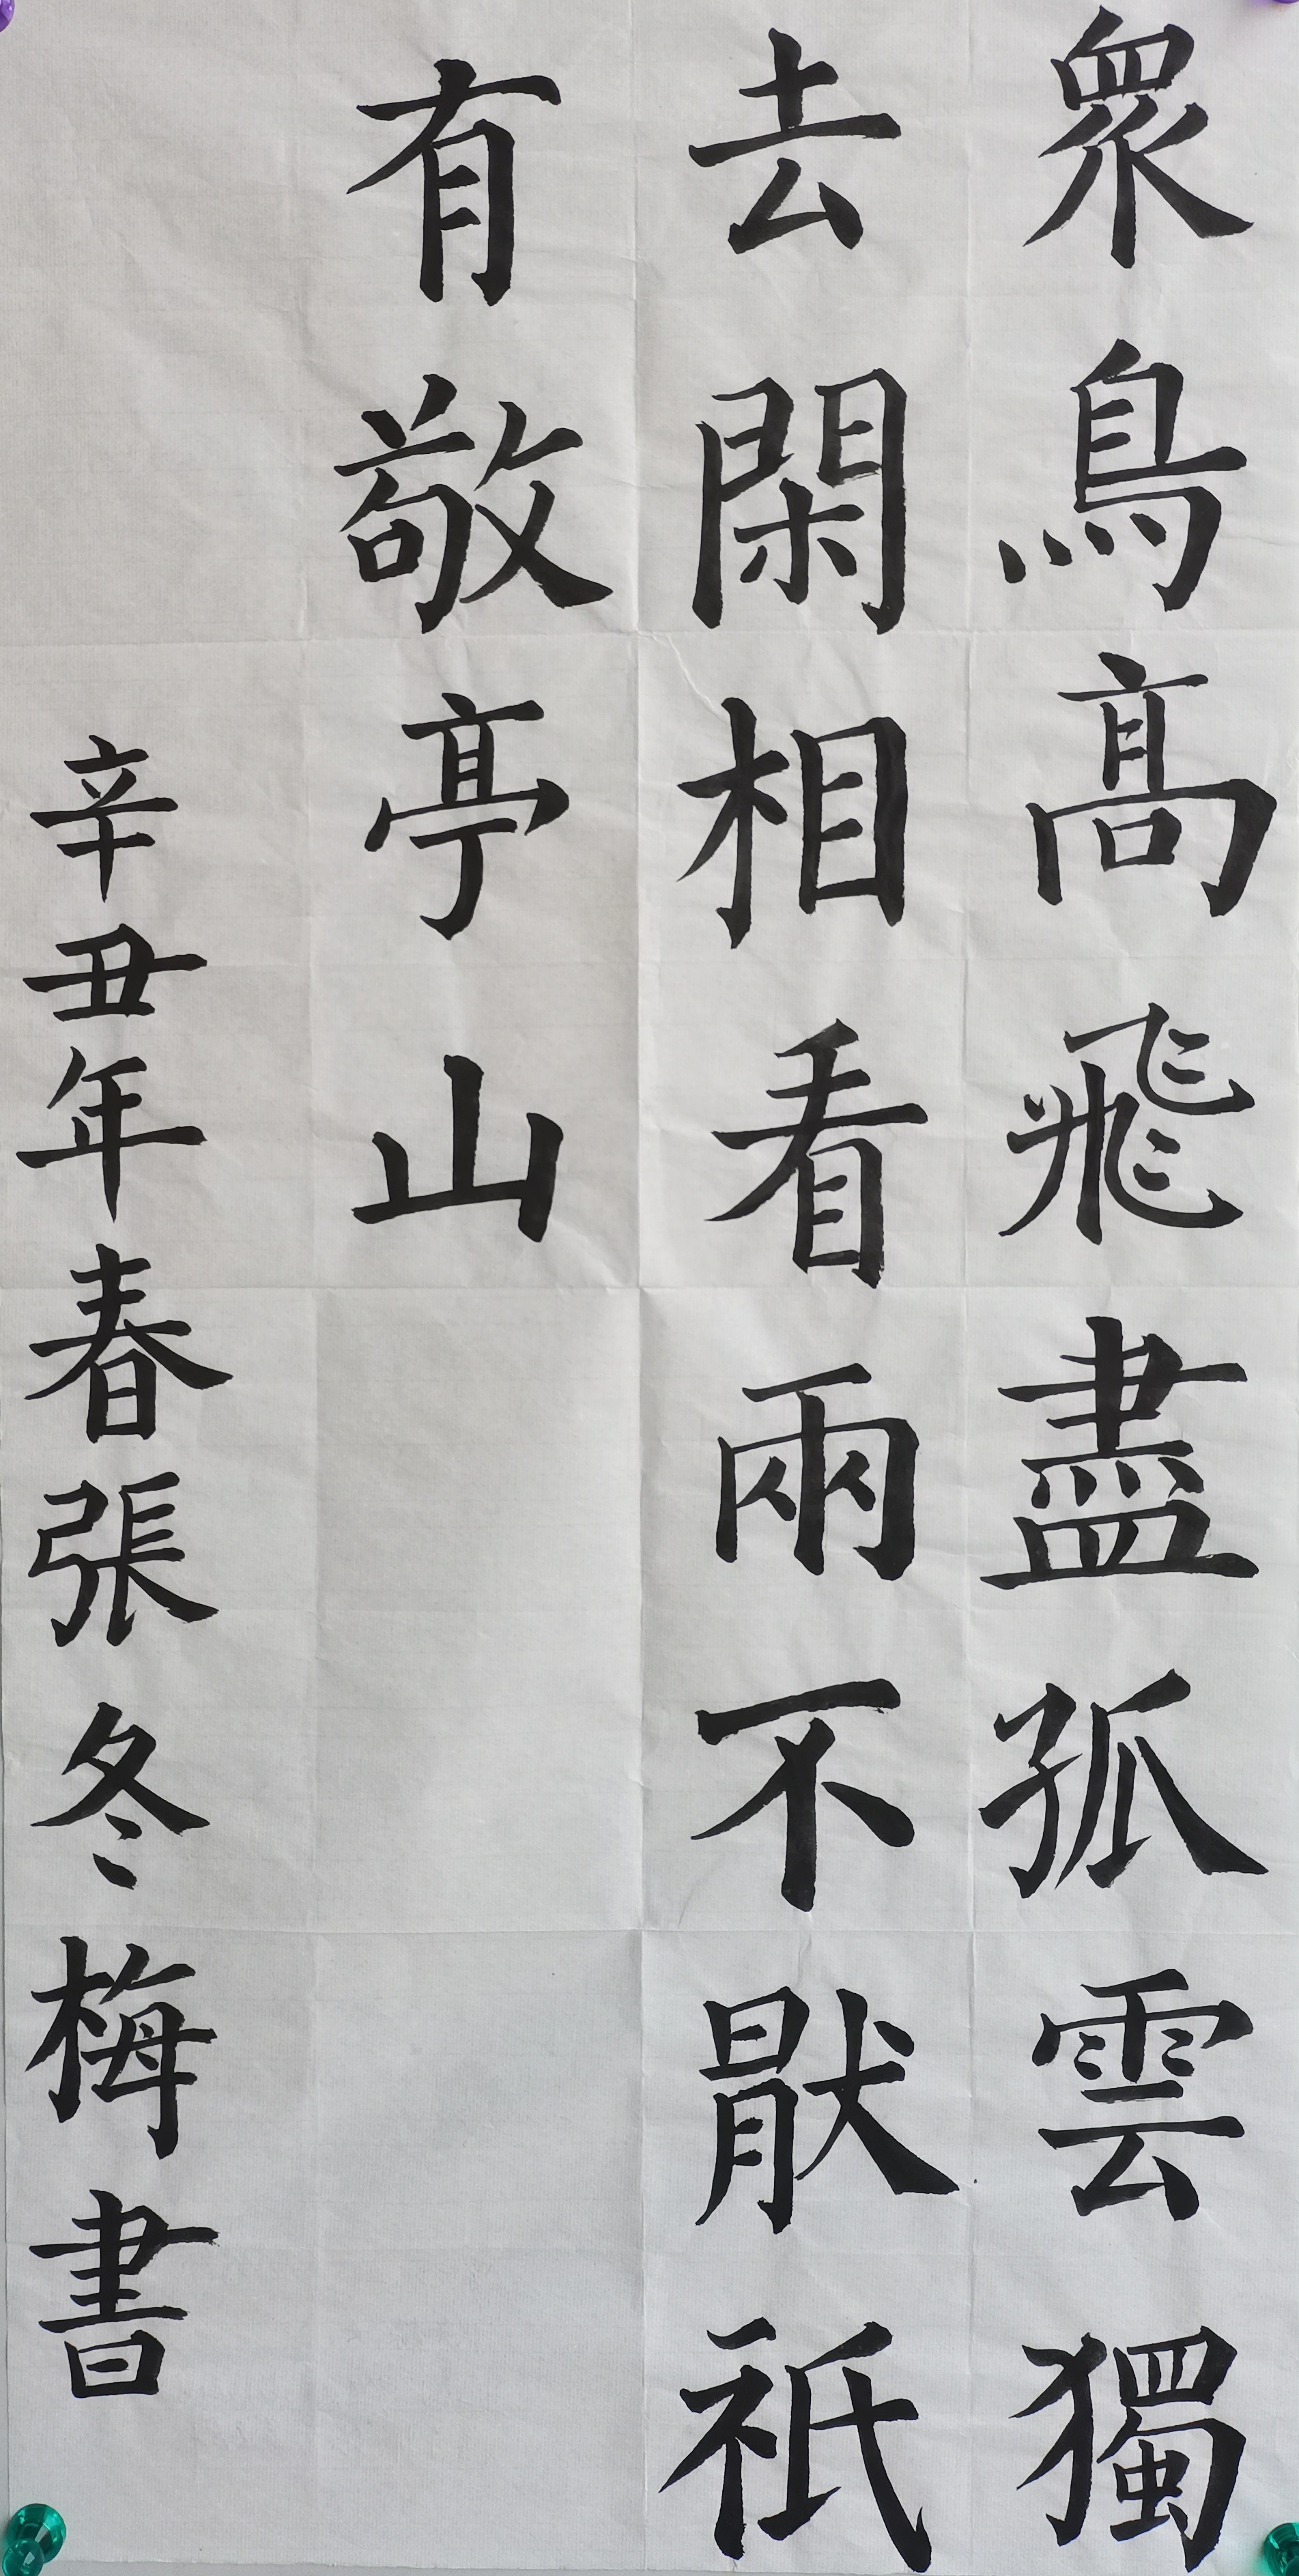 眾鳥高飛盡孤雲獨
去閑相看兩不猒祇
有敬亭山
辛丑年春張冬梅書